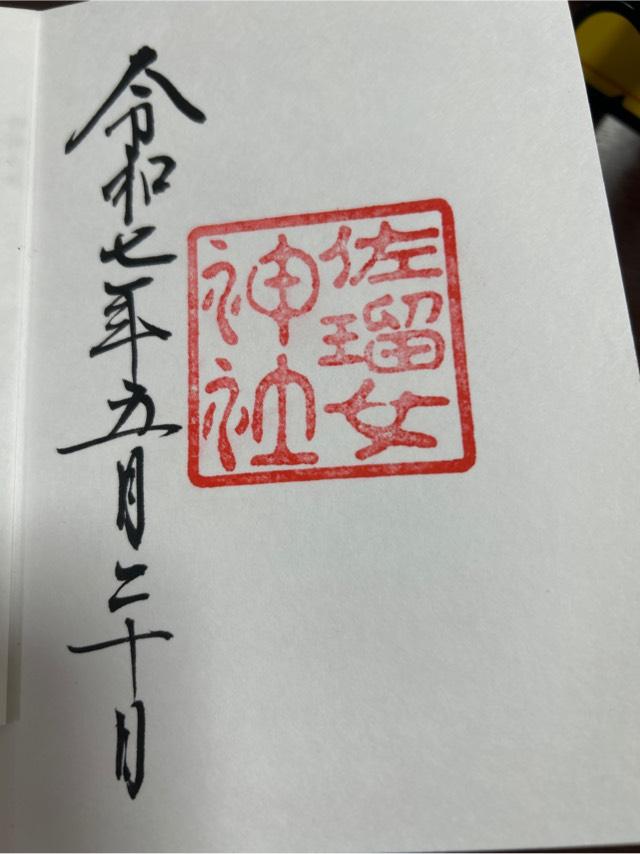 佐瑠女
神社
令和七年五月二十日